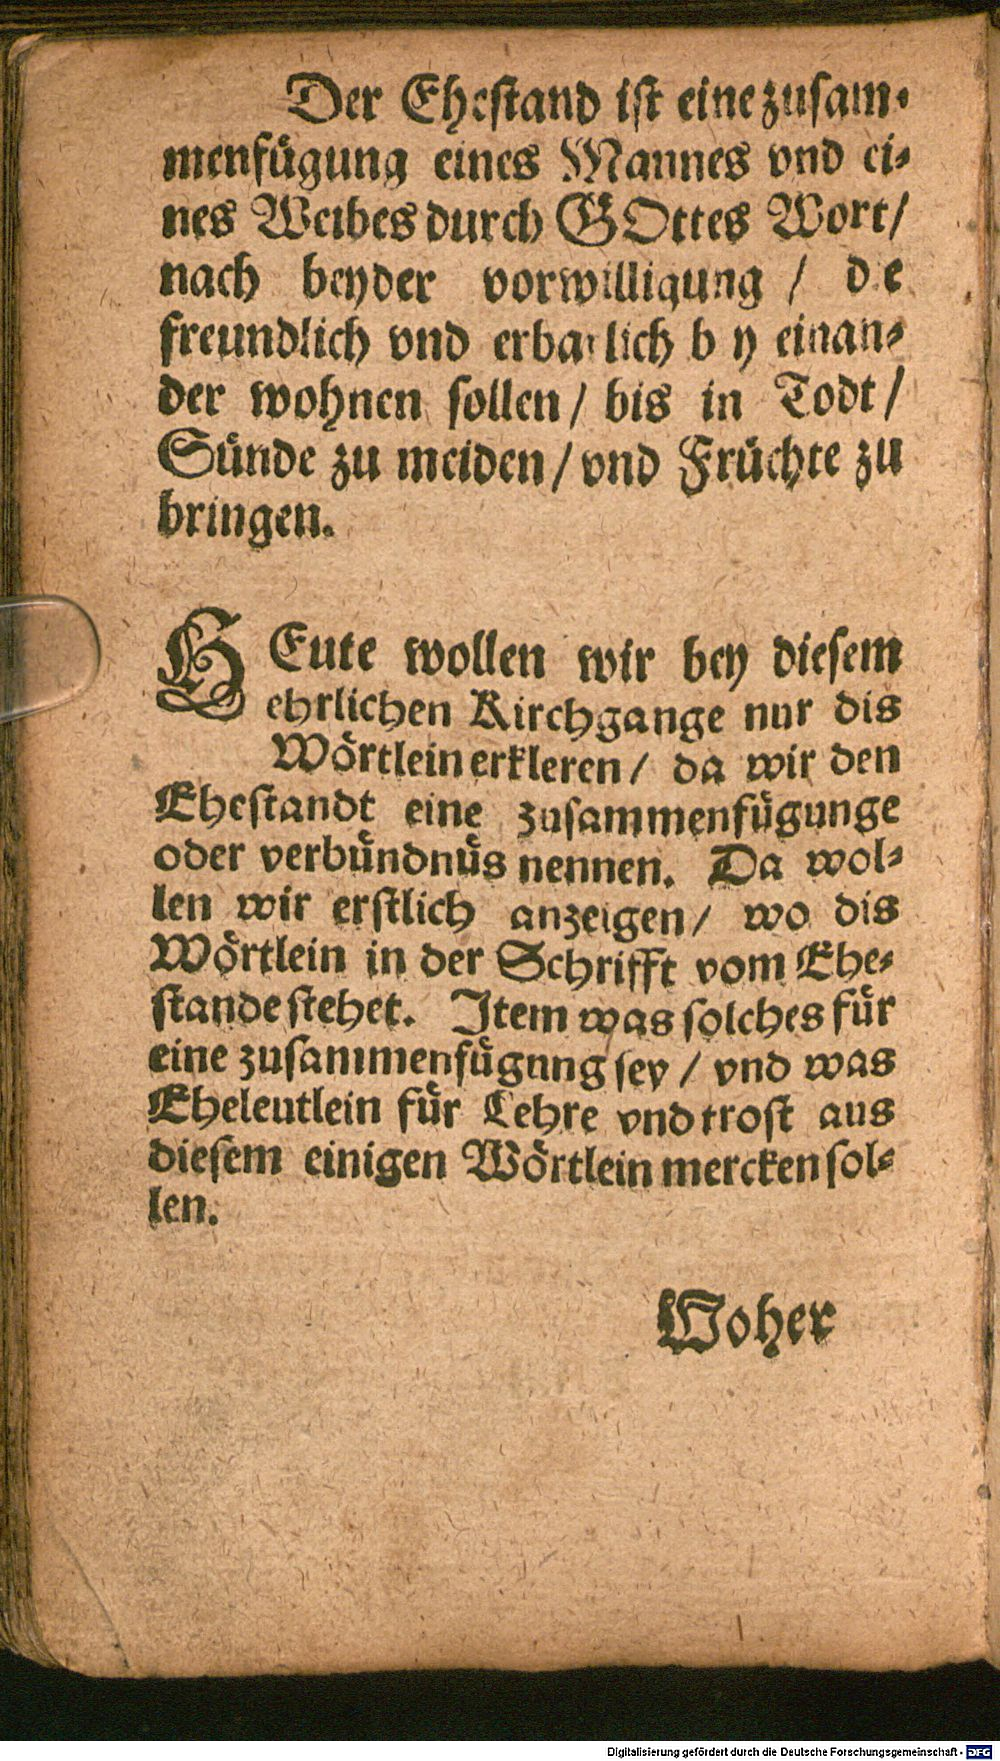 Der Ehestand ist eine zusam-
menfügung eines Mannes vnd ei-
nes Weibes durch GOttes Wort/
nach beyder vorwilligung / d e
freundlich vnd erbarlich b y einan-
der wohnen sollen / bis in Todt /
Sünde zu meiden / vnd Früchte zu
bringen.
HEute wollen wir bey diesem
ehrlichen Kirchgange nur dis
Wörtlein erkleren / da wir den
Ehestandt eine zusammenfügunge
oder verbündnüs nennen. Da wol-
len wir erstlich anzeigen / wo dis
Wörtlein in der Schrifft vom Ehe-
stande stehet. Item was solches für
eine zusammenfügung sey / vnd was
Eheleutlein für Lehre vnd trost aus
diesem einigen Wörtlein mercken sol-
len.
Woher
Digitalisierung gefördert durch die Deutsche Forschungsgemeinschaft - DFG